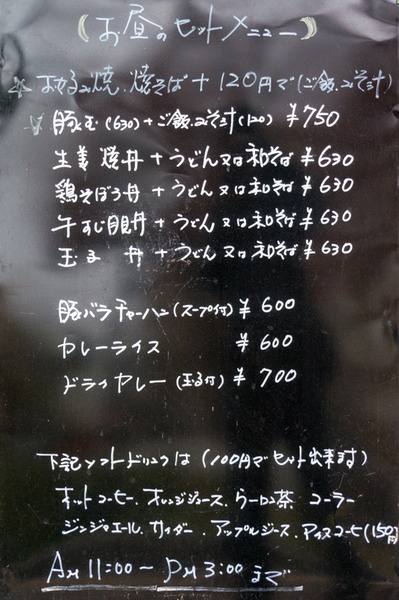 (お昼のセットメニュー)
☆ お好み焼、焼そば + 120円で(ご飯、みそ汁)
豚玉(630)+ご飯、みそ汁(120) ¥750
生姜焼丼 + うどん又は和そば ¥630
鶏そぼろ丼 + うどん又は和そば ¥630
牛すじ目丼 + うどん又は和そば ¥630
玉子 丼 + うどん又は和そば ¥630
豚バラチャーハン(スープ付) ¥600
カレーライス ¥600
ドライカレー(玉子付) ¥700
下記ソフトドリンクは(100円でセット出来ます)
ホットコーヒー、オレンジジュース、ウーロン茶 コーラー
ジンジャエール、サイダー、アップルジース、アイスコーヒ(150円)
AM 11:00〜PM 3:00まで